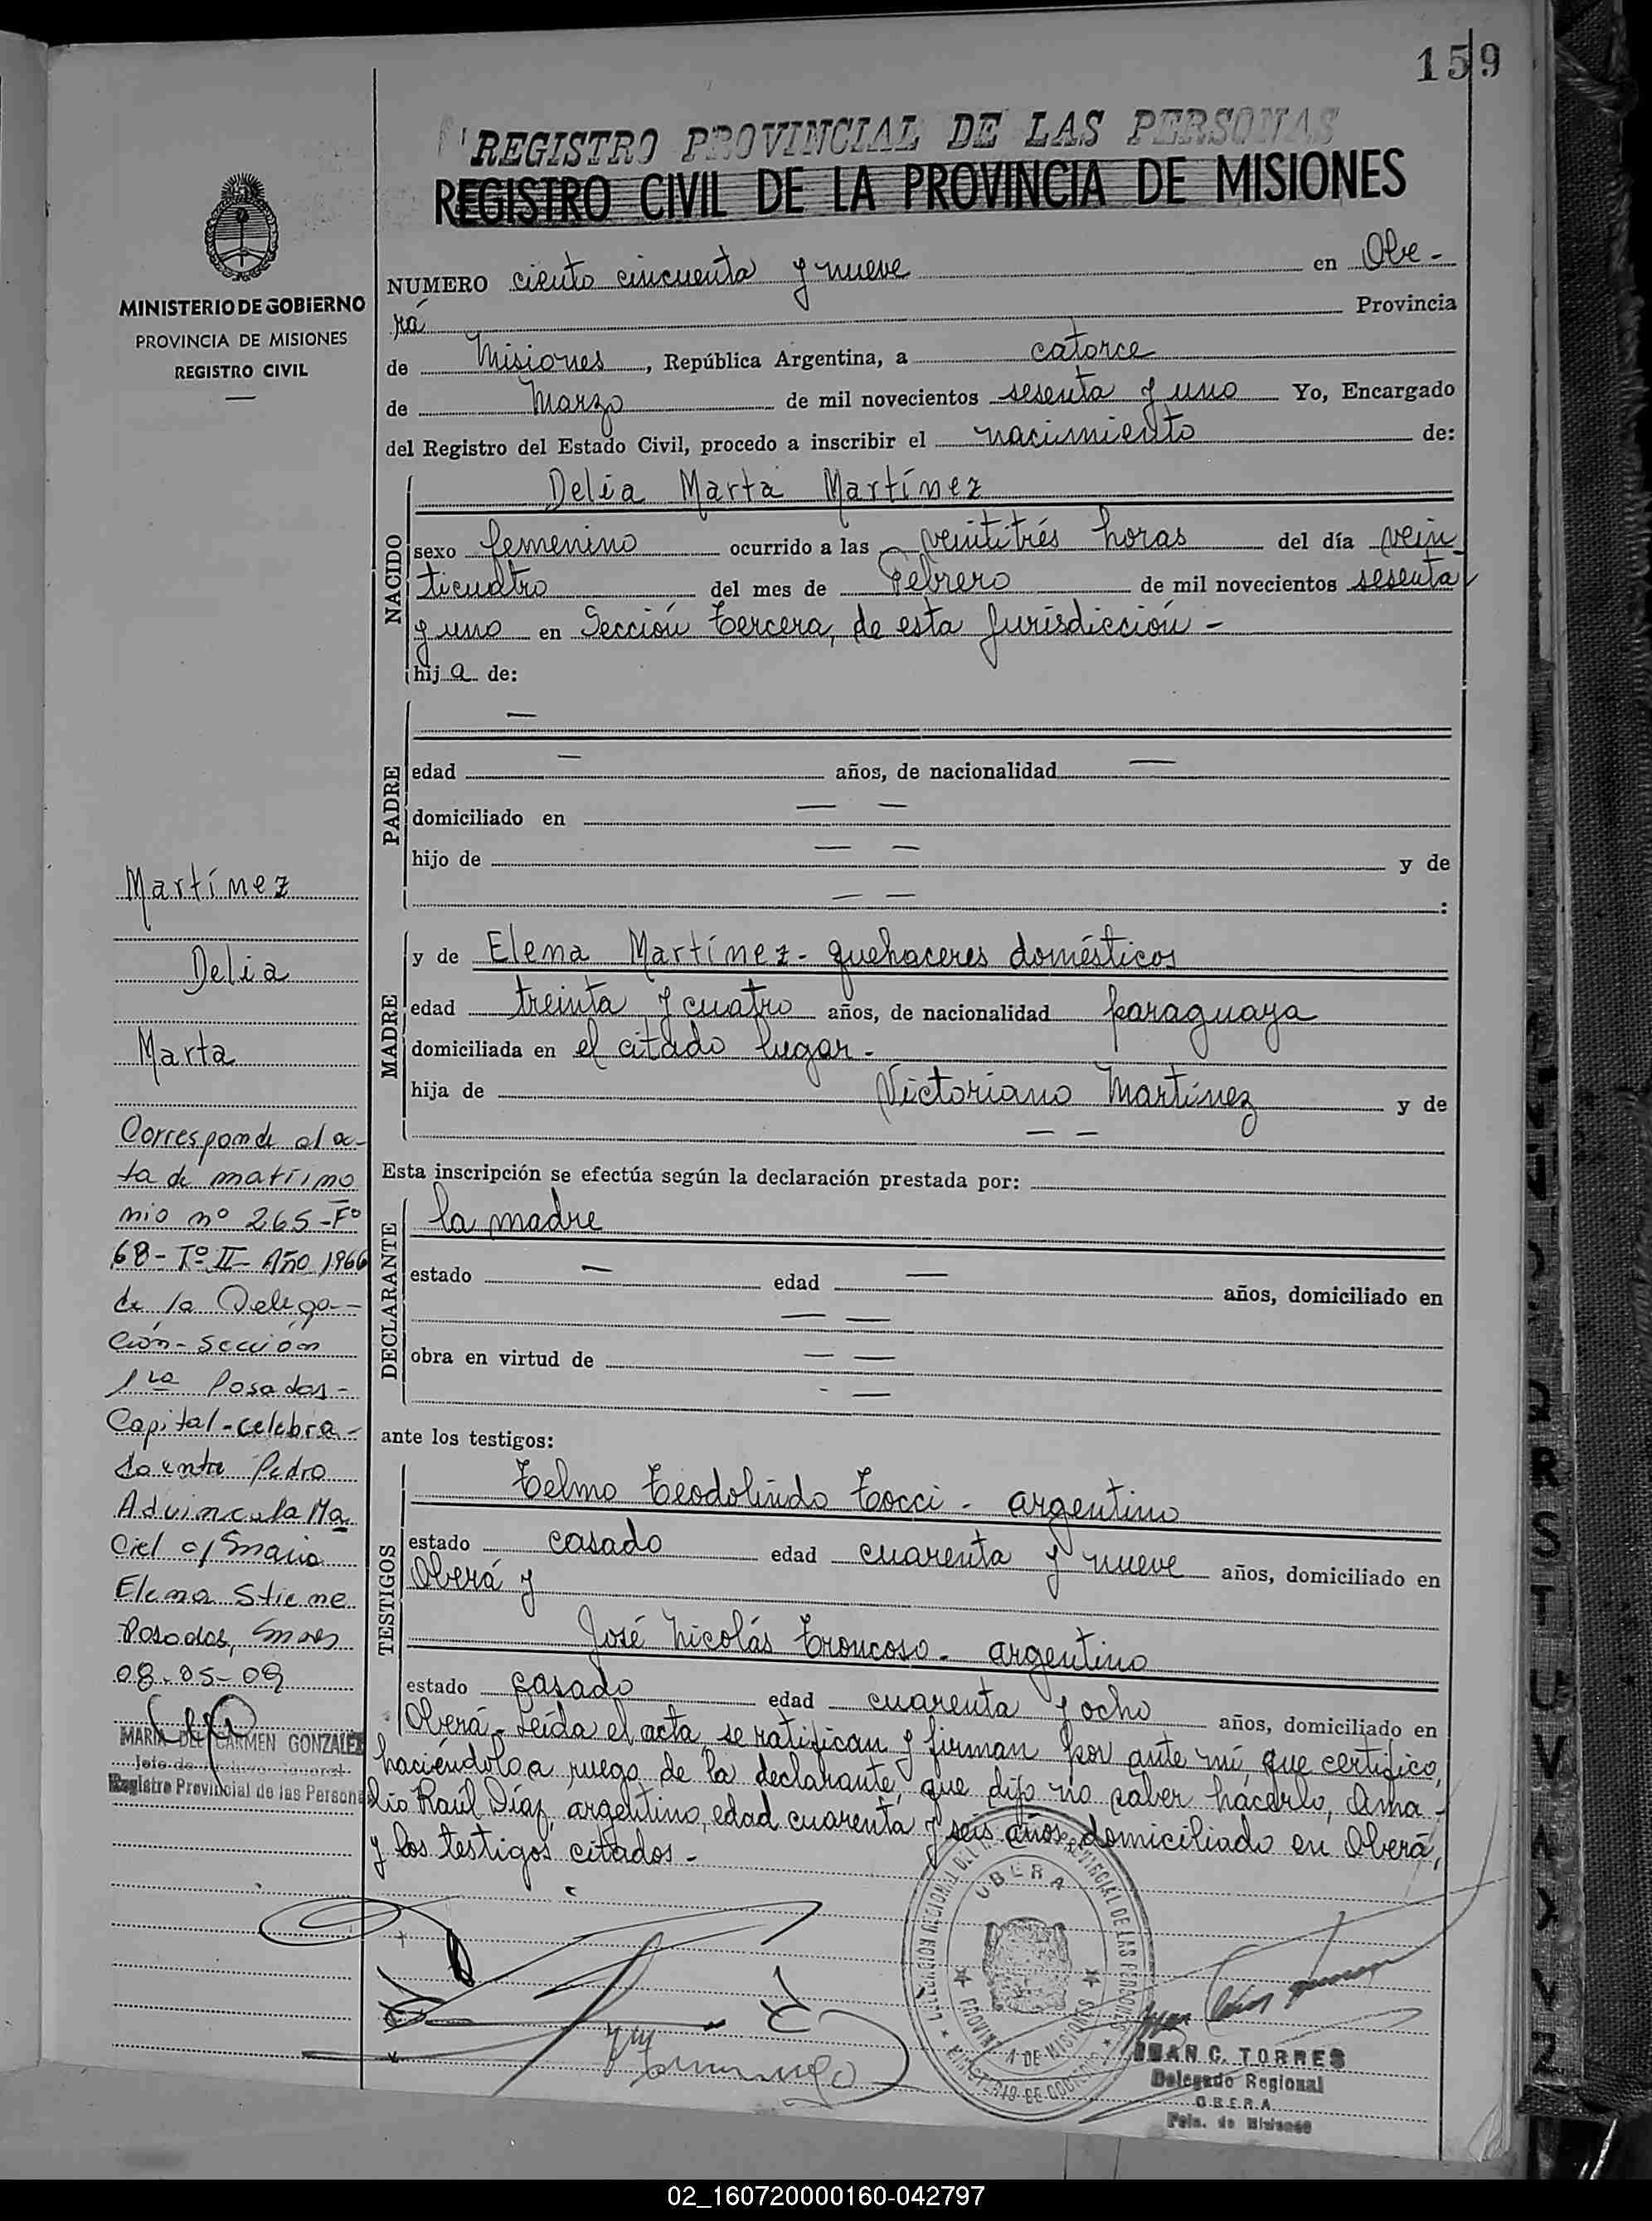 159
REGISTRO PROVINCIAL DE LAS PERSONAS
REGISTRO CIVIL DE LA PROVINCIA DE MISIONES
MINISTERIO DE GOBIERNO
PROVINCIA DE MISIONES
REGISTRO CIVIL
NUMERO ciento cincuenta y nueve en Obe-
rá Provincia
de Misiones, República Argentina, a catorce
de Marzo de mil novecientos sesenta y uno Yo, Encargado
del Registro del Estado Civil, procedo a inscribir el nacimiento de:
NACIDO
Delia Marta Martínez
sexo femenino ocurrido a las veintitrés horas del día vein
ticuatro del mes de Febrero de mil novecientos sesenta
y uno en Sección Tercera, de esta Jurisdicción -
hij a de:
PADRE
—
edad — años, de nacionalidad —
domiciliado en — —
hijo de — — y de
— — :
MADRE
y de Elena Martínez - quehaceres domésticos
edad treinta y cuatro años, de nacionalidad paraguaya
domiciliada en el citado lugar -
hija de Victoriano Martínez y de
— —
Esta inscripción se efectúa según la declaración prestada por:
DECLARANTE
la madre
estado — edad — años, domiciliado en
— —
obra en virtud de — —
- —
ante los testigos:
TESTIGOS
Telmo Teodolindo Tocci - argentino
estado casado edad cuarenta y nueve años, domiciliado en
Oberá y
José Nicolás Troncoso - argentino
estado casado edad cuarenta y ocho años, domiciliado en
Oberá - Leída el acta, se ratifican y firman por ante mí, que certifico,
haciéndolo a ruego de la declarante, que dijo no saber hacerlo, Ama-
lio Raúl Díaz, argentino, edad cuarenta y seis años, domiciliado en Oberá,
y los testigos citados -
Martínez
Delia
Marta
Corresponde al ac-
ta de matrimo
nio nº 265 - Fº
68 - Tº II - Año 1966
de la Delega-
ción - sección
1ra Posadas -
Capital - celebra-
do entre Pedro
Advincula Ma
ciel c/ María
Elena
Posadas, Mnes
08-05-09
MARIA DEL CARMEN GONZALEZ
Jefe de Archivo General
Registro Provincial de las Personas
OBERA
PROVINCIA DE MISIONES
MINISTERIO DE GOBIERNO
JUAN C. TORRES
Delegado Regional
OBERA
Pcia. de Misiones
02_160720000160-042797